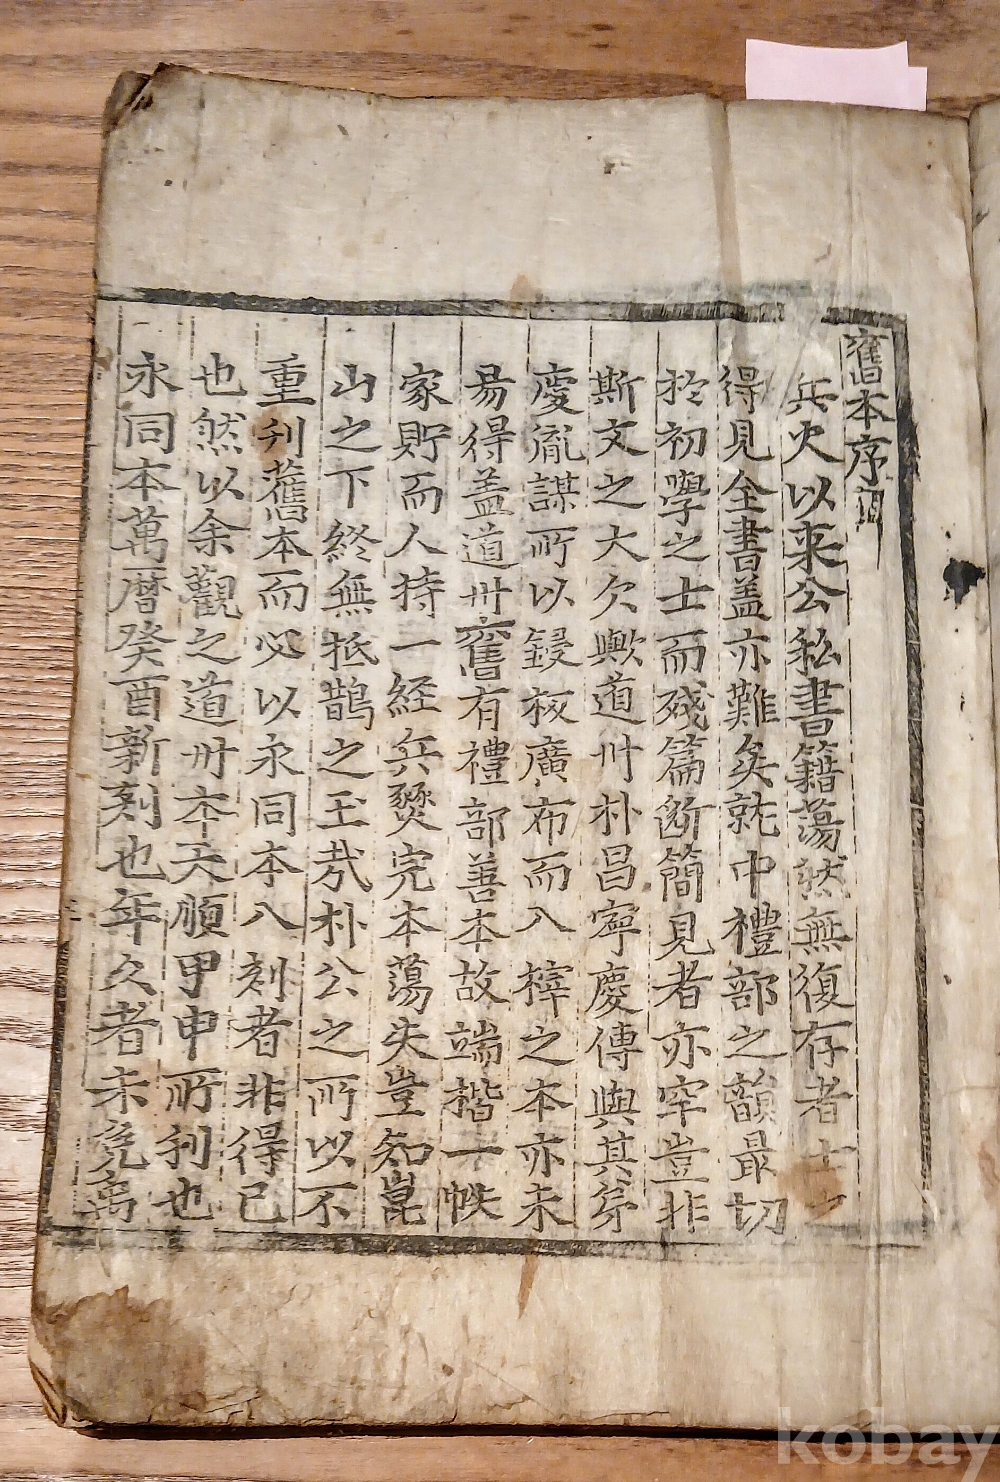 舊本序
兵火以来公私書籍蕩然無復存者士之
得見全書盖亦難矣就中禮部之韻最切
於初學之士而殘篇断簡見者亦罕豈非
斯文之大欠歟道州朴昌寧慶傳與其弟
慶胤謀所以鋟板廣布而入梓之本亦未
易得盖道州舊有禮部善本故端楷一帙
家貯而人持一經兵燹完本蕩失豈知崑
山之下終無抵鵲之玉㢤朴公之所以不
重刋舊本而必以永同本入刻者非得已
也然以余觀之道州本天順甲申所刋也
永同本萬曆癸酉新刻也年久者未免
kobay